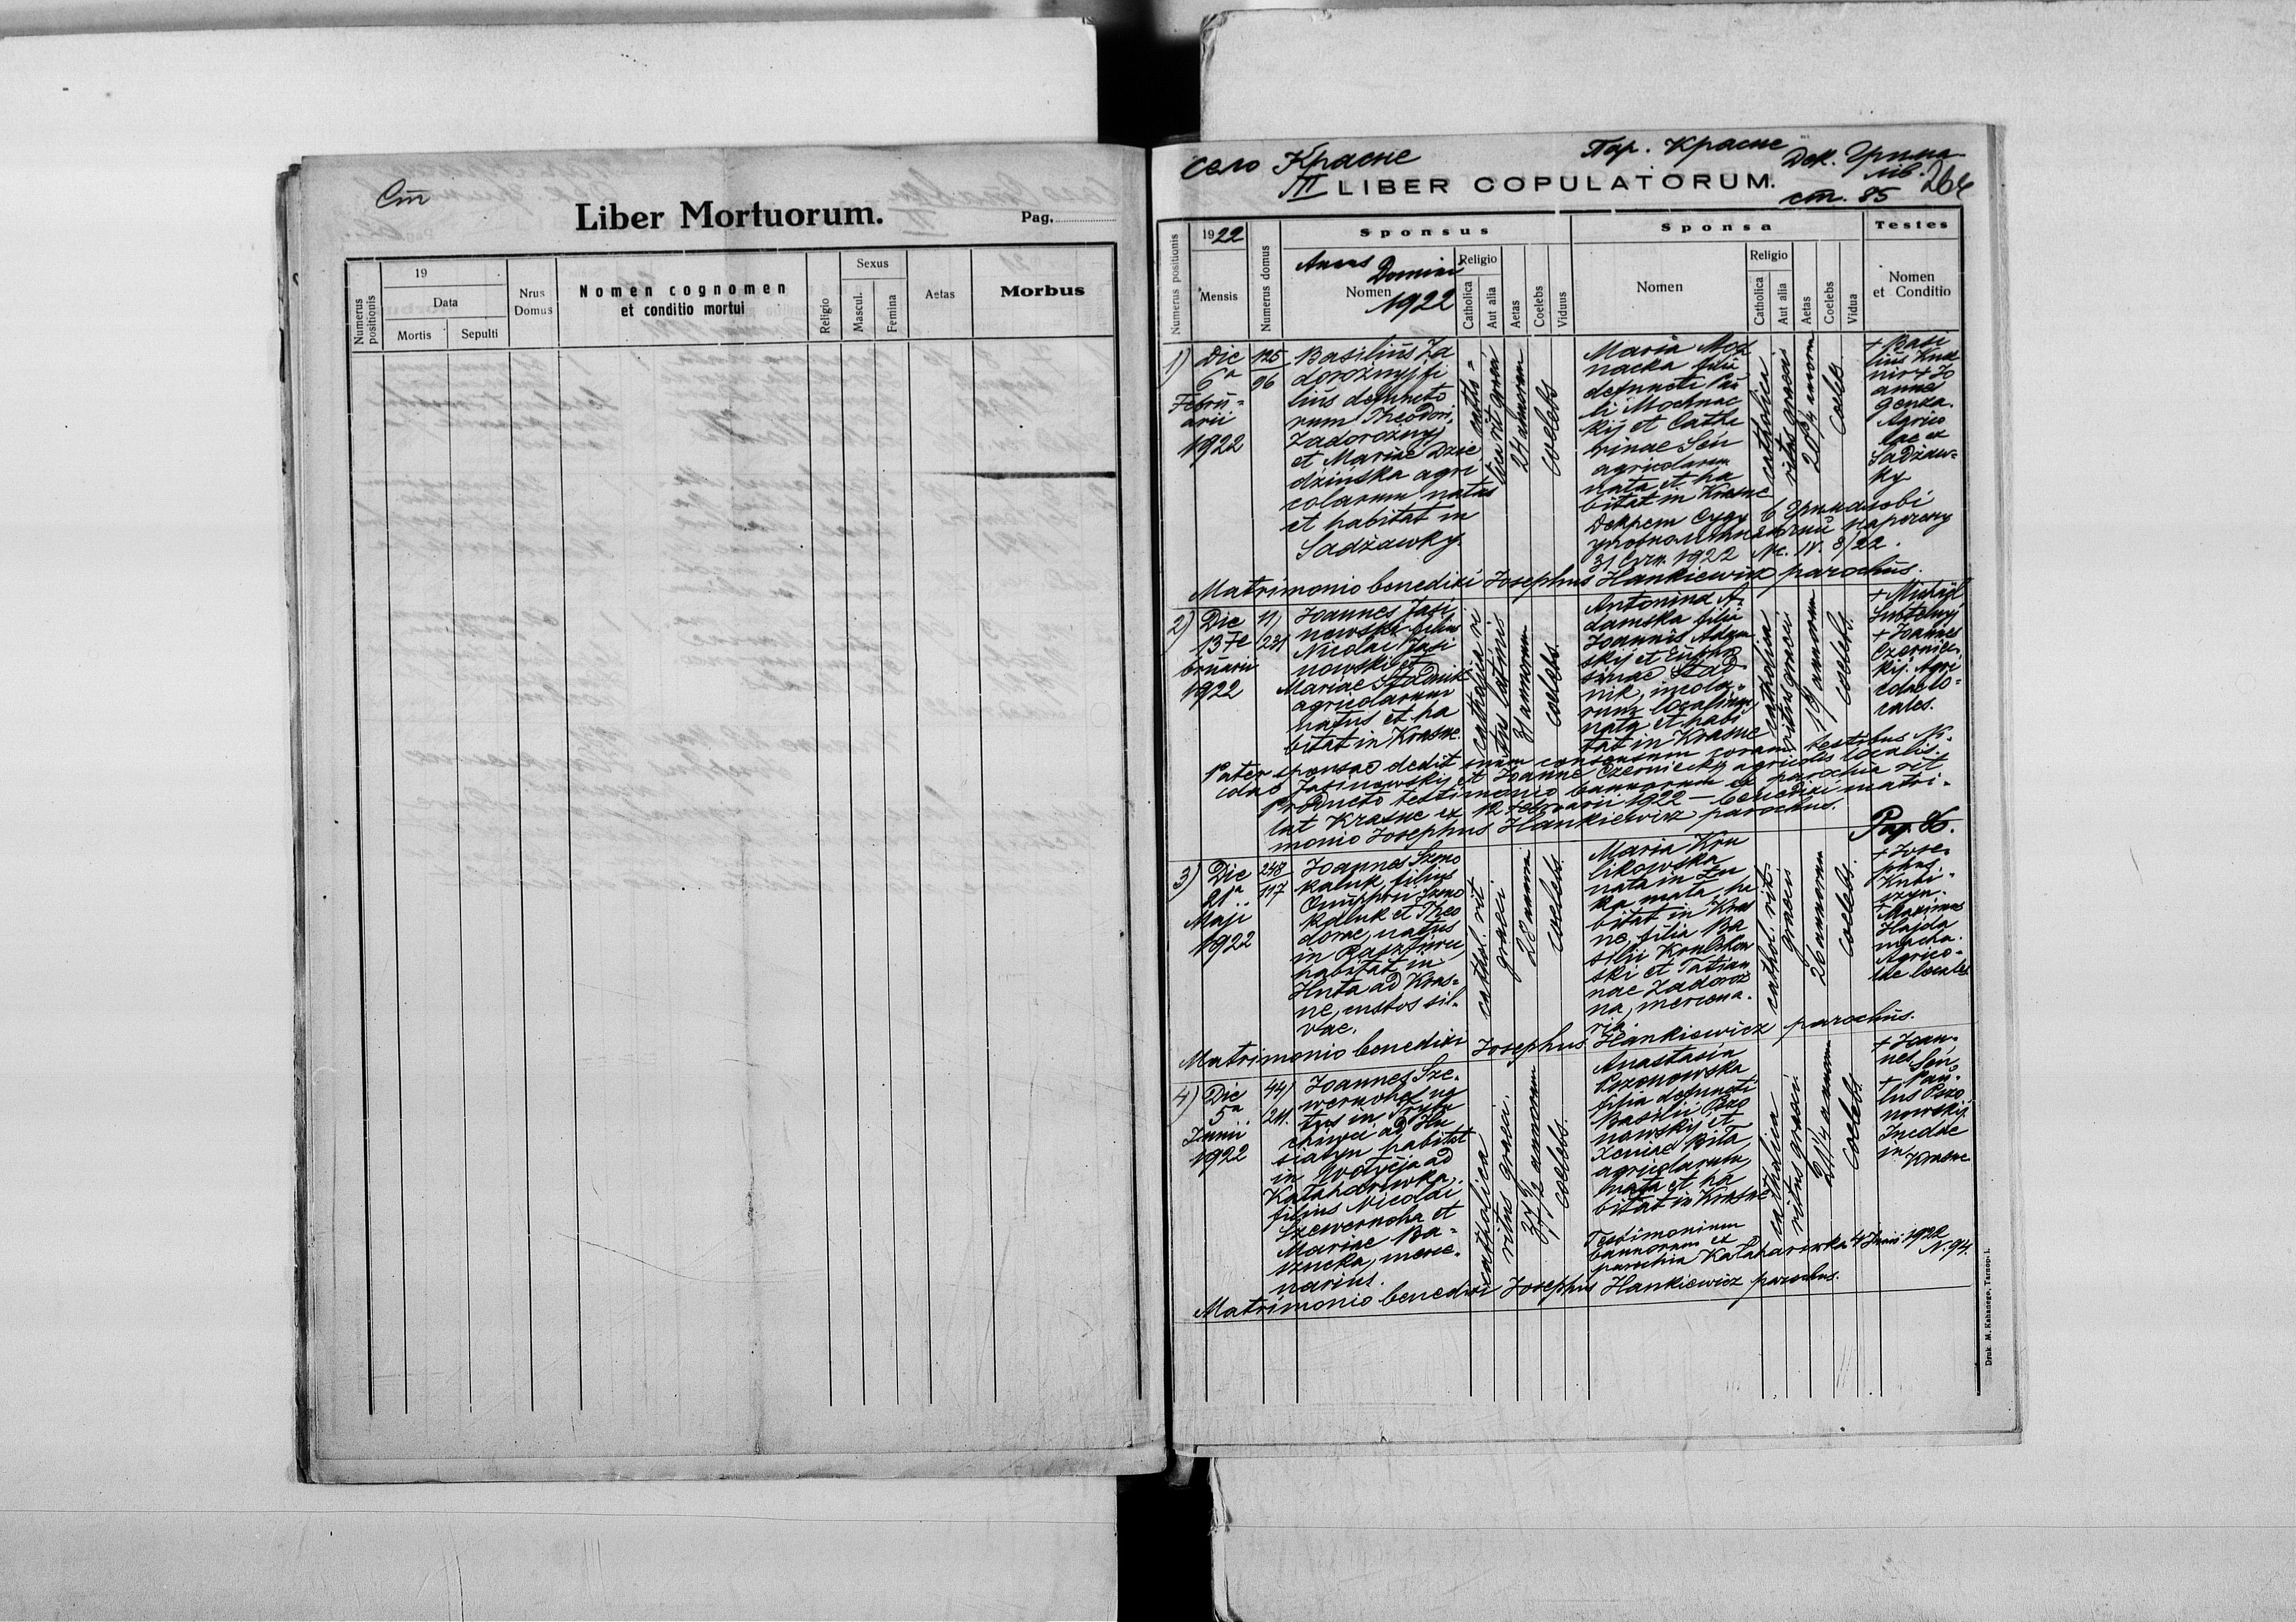 Ст
Liber Mortuorum.
Pag.
Numerus positionis
19
Data
Mortis
Sepulti
Nrus Domus
Nomen cognomen
et conditio mortui
Religio
Sexus
Mascul.
Femina
Aetas
Morbus
село Красне
Пар. Красне
Дек. Грима-
лів.
ст. 85
III LIBER COPULATORUM.
Numerus positionis
1922
Mensis
Numerus domus
Sponsus
Annus Domini
Nomen
1922
Religio
Catholica
Aut alia
Aetas
Coelebs
Viduus
Sponsa
Nomen
Religio
Catholica
Aut alia
Aetas
Coelebs
Vidua
Testes
Nomen
et Conditio
1)
Die
6a
Febru=
arii
1922
125
96
Basilius Za
dorożnyj fi
lius defuncto
rum Theodori
Zadorożnyj
et Mariae Dzie
dzińska agri
colarum natus
et habitat in
Sadżawky.
catho=
lica rit. graeci
24 annorum
coelebs
Maria Moch
nacka filia
defuncti Pau
li Mochnac
kij et Cathe
rinae Seń
agricolarum
nata et ha
bitat in Krasne
catholica
ritus graeci
20 3/4 annorum
coelebs
+ Basi
lius
+ Jo
annes
Agrico
lae ex
Sadżaw=
ky
Декрет Суду в Грималові
31 Січн. 1922 Nc. IV. 8/22.
Matrimonio benedixi Josephus Hankiewicz parochus.
2)
Die
13 Fe
bruarii
1922
11/
231
Joannes Jasi
nowskij filius
Nicolai Jasi
nowskij et
Mariae Stadnik
agricolarum
natus et ha
bitat in Krasne.
catholica ri
tus latinus
31 annorum
coelebs.
Antonina A.
damska filia
Joannis Adam
skij et Euphro
sinae Stad
nik, incola-
rum localium
nata et habi
tat in Krasne
catholica
ritus graeci
19 annorum
coelebs.
+ Michael
+ Joannes
Czerniec-
kij. Agri
colae lo=
cales.
Pater sponsae dedit suum consensum coram testibus Ni-
colao Jasinowskij et Joanne Czerniecki agricolis localis.
Producto testimonio bannorum ex parochia rit
lat Krasne ex 12 Februarii 1922 – benedixi matri-
monio Josephus Hankiewicz parochus.
3)
Die
21a
Maji
1922
248
117
Joannes Szmo
kaluk, filius
Onuphrii Szmo
kaluk et Theo
dorae, natus
in
habitat in
Huta ad Kras=
ne, custos sil-
vae.
cathol. rit
graeci.
28 annorum
coelebs.
Maria Kru
likowska
nata in Łu
ka mała, ha
bitat in Kras
ne, filia Ba
silii Krulikow
ski et Tatian
nae Zadoroż
na, mercena-
ria.
cathol. rit.
graecis
26 annorum
coelebs.
+ Jose-
phus
+ Maximus
Hajda
macha.
Agrico-
lae locales
Matrimonio benedixi Josephus Hankiewicz parochus.
4)
Die
5a
Junii
1922
44/
211.
Joannes Sze-
wernoha na
tus in Trybu
chiwci ad Hu
siatyn habitat
in
ad
Kałaharówka,
filius Nicolai
Szewernoha et
Mariae Ba-
merce-
narius.
catholica
ritus graeci.
37 1/2 annorum
coelebs.
Anastasia
Bzonowska
filia defuncti
Basilii Bzo
nowskij et
Xeniae Biła
agricolarum,
nata et ha
bitat in Krasne
catholica
ritus graeci
21 1/4 annorum
coelebs
+ Joan-
nes Seń
+ Pau-
lus Bzo
nowskij.
Incolae
in
Krasne
Testimonium
bannorum ex
parochia Kałaharivka 4 Junii 1922
N. 94.
Matrimonio benedixi Josephus Hankiewicz parochus.
Druk. M. Kahanego, Tarnop. l.